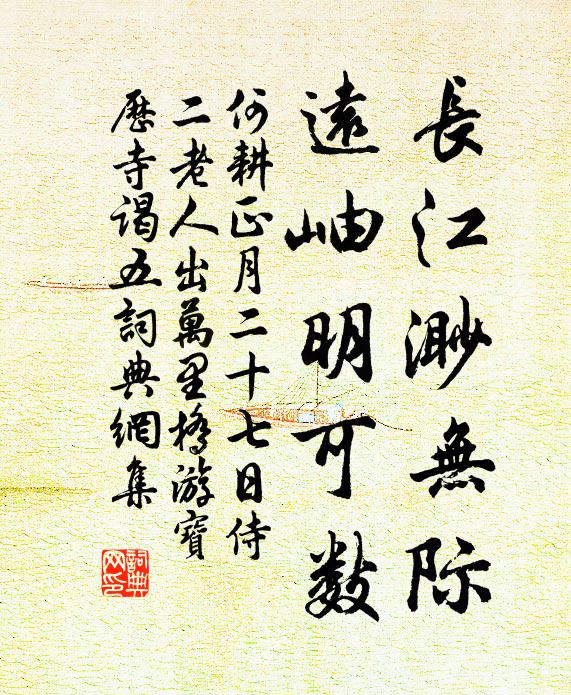 長江渺無际
遠岫明可数
何耕正月二十七日侍
二老人出萬里橋游寶
歷寺谒五詞典網集
詞典网印